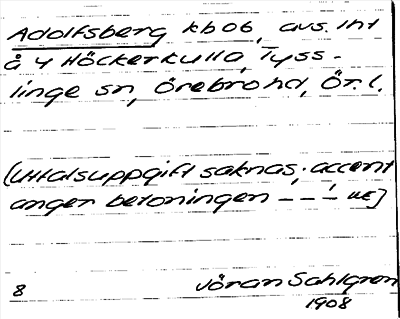 Adolfsberg kbob, avs. lht
å 4 Höckerkulla, Tyss-
linge sn, Örebro hd, Ör. l.
(Uttalsuppgift saknas; accent
anger betoningen _ _ _́ _
8 Jöran Sahlgren
1908